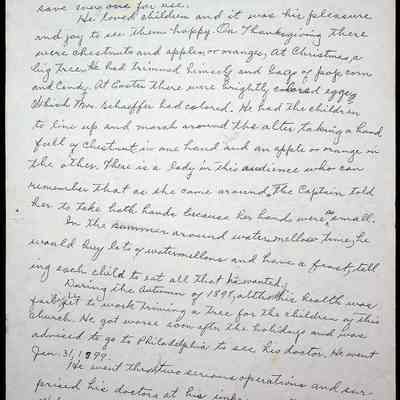 save everyone for use.
He loved children and it was his pleasure
and joy to see them happy. On Thanksgiving there
were chestnuts and apples or oranges, At Christmas, a
big tree he had trimmed himself and bags of pop corn
and Candy. At Easter there were brightly colored eggs
Which Mrs. Schaeffer had colored. He had the children
to line up and march around the alter taking a hand
full of chestnuts in one hand and an apple or orange in
the other. There is a lady in this audience who can
remember that as she came around, the Captain told
her to take both hands because her hands were so small.
In the summer around watermellow time, he
would buy lots of watermellons and have a feast, tell
ing each child to eat all that he wanted.
During the autumn of 1898, altho his health was
he went to work triming a tree for the children of this
church. He got worse soon after the holidays and was
advised to go to Philadelphia to see his doctor. He went
Jan. 31, 1899.
He went thru two serious operations and sur-
prised his doctors at his